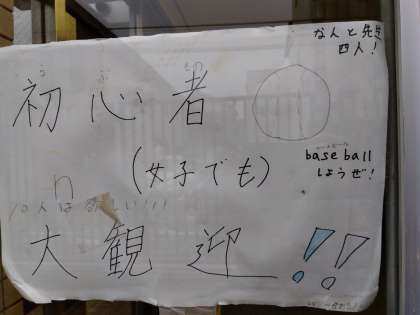 なんと先生
四人!
初心者
(女子でも)
baseball
しようぜ!
10人は欲しい!!!
大観迎!!